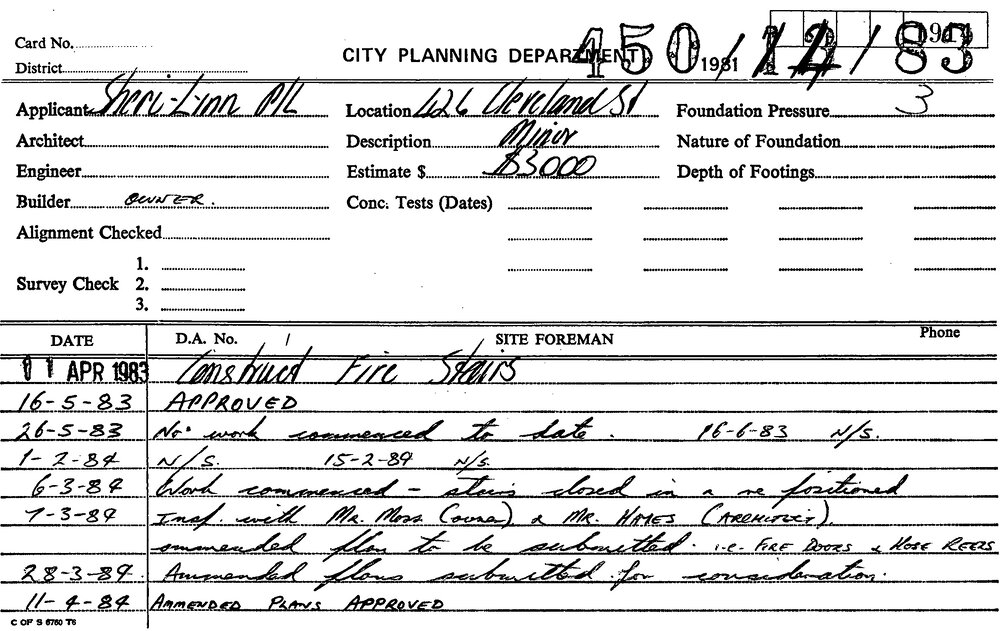 Card No.
CITY PLANNING DEPARTMENT 450 1981 / 12 / 83
District
Applicant Sheri-Linn P/L Location 426 Cleveland St Foundation Pressure 3
Architect Description Minor Nature of Foundation
Engineer Estimate $ $3000 Depth of Footings
Builder OWNER. Conc. Tests (Dates)
Alignment Checked
1.
Survey Check 2.
3.
DATE D.A. No. / SITE FOREMAN Phone
11 APR 1983 Construct Fire Stairs
16-5-83 APPROVED
26-5-83 No work commenced to date. 16-6-83 N/S.
1-2-84 N/S. 15-2-84 N/S.
6-3-84 Work commenced - stairs closed in & re positioned
7-3-84 Insp. with Mr. Moss (owner) & MR. HAYES (ARCHITECT).
ammended plan to be submitted. i-e. FIRE DOORS & HOSE REELS
28-3-84. Ammended plans submitted for consideration.
11-4-84 AMMENDED PLANS APPROVED
C OF S 6760 T6